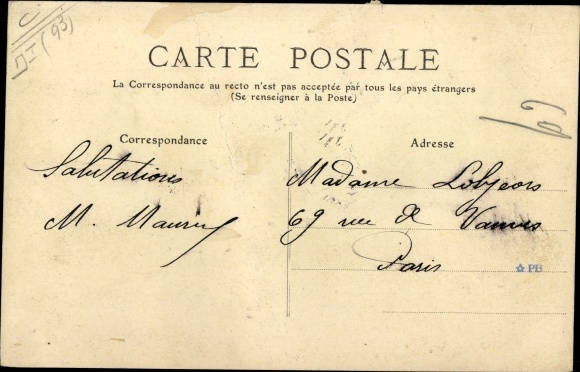 (93)
CARTE POSTALE
La Correspondance au recto n'est pas acceptée par tous les pays étrangers
(Se renseigner à la Poste)
Correspondance
Salutations
M.
Adresse
Madame
69 rue de Vanves
Paris
PH